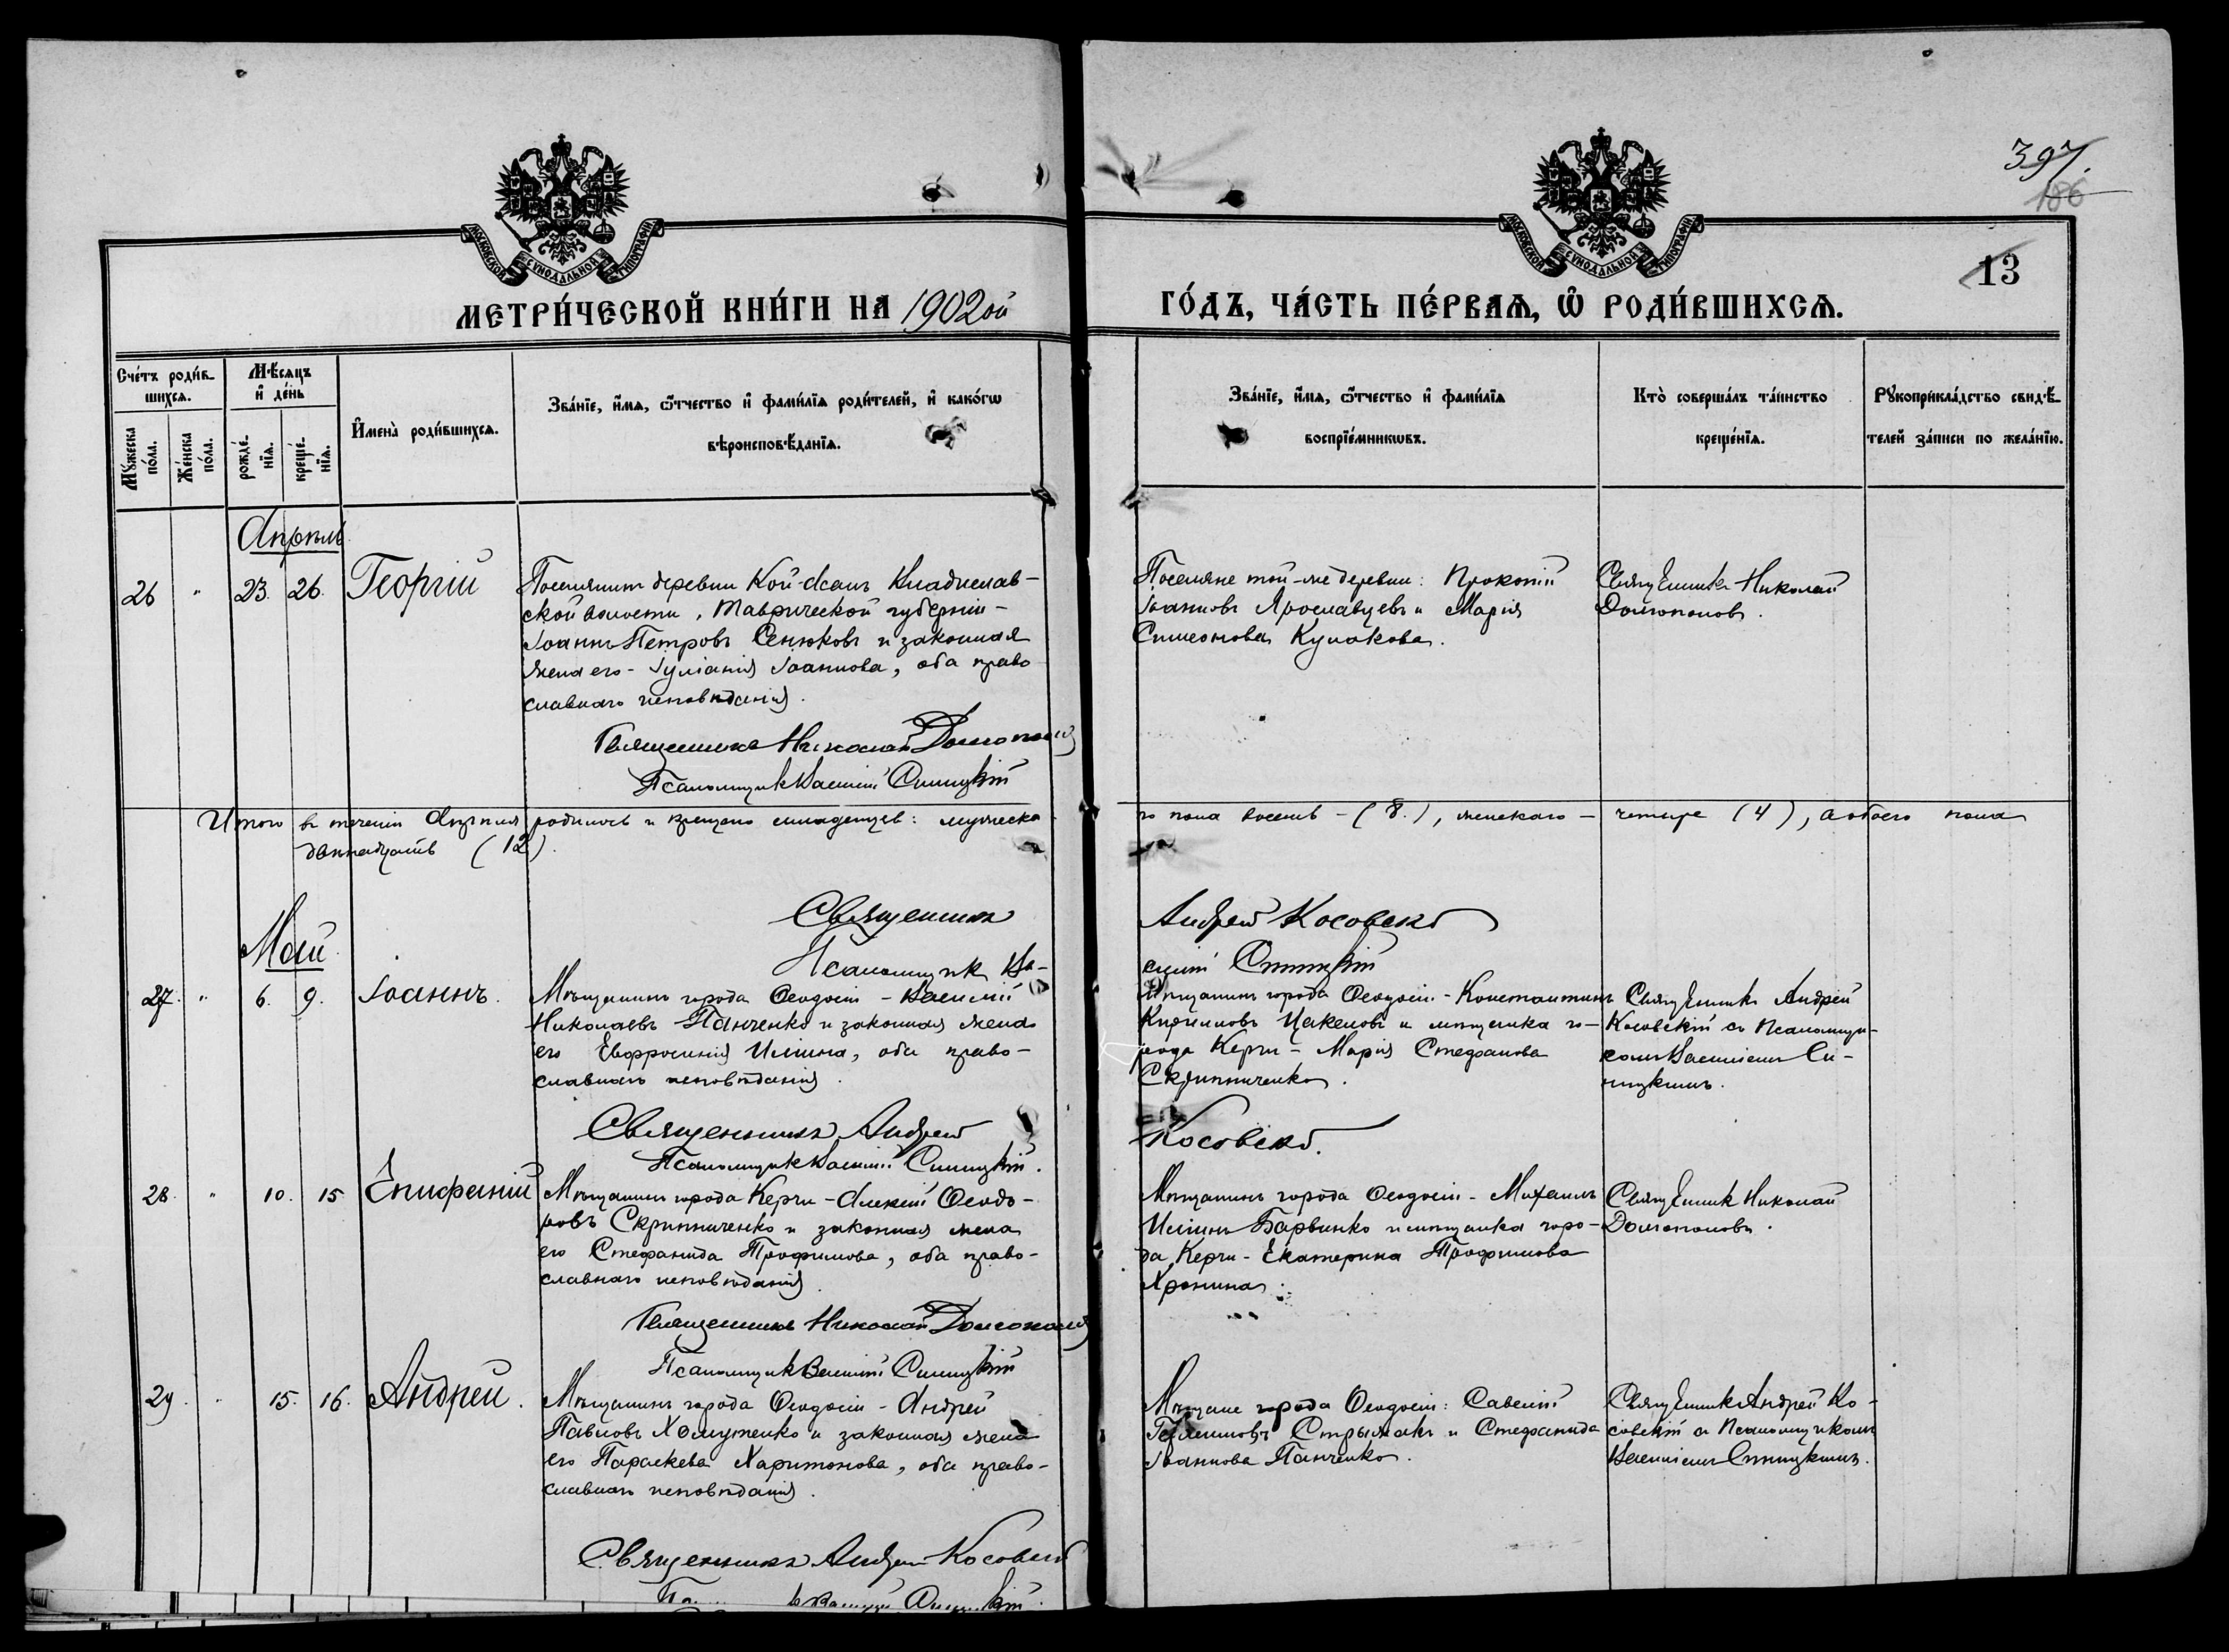 397.
186
13
МОСКОВСКОЙ СѴНОДАЛЬНОЙ ТИПОГРАФІИ
МОСКОВСКОЙ СѴНОДАЛЬНОЙ ТИПОГРАФІИ
МЕТРИ́ЧЕСКОЙ КНИ́ГИ НА 1902ой
ГО́ДЪ, ЧА́СТЬ ПЕ́РВАѦ, Ѡ҆ РОДИ́ВШИХСѦ.
Сче́тъ роди́в-
шихсѧ.
Мꙋ́жеска по́ла.
Же́нска по́ла.
Мѣ́сѧцъ
и҆ де́нь
рожде́-
нїѧ.
креще́-
нїѧ.
И҆мена̀ роди́вшихсѧ.
Зва́нїе, и҆́мѧ, ѻ҆́тчество и҆ фамѝлїѧ роди́телей, и҆ како́гѡ
вѣроисповѣ́данїѧ.
Зва́нїе, и҆́мѧ, ѻ҆́тчество и҆ фами́лїѧ
воспрїе́мникѡвъ.
Кто̀ соверша́лъ та́инство
креще́нїѧ.
Рꙋкоприкла́дство свидѣ́-
телей за́писи по жела́нїю.
Апрѣль
26 " 23. 26. Георгій
Поселянинъ деревни Кой-Асанъ Владислав-
ской волости, Таврической губерніи-
Іоаннъ Петровъ Сенюковъ и законная
жена его - Іуліанія Іоаннова, оба право
славнаго исповѣданія.
Священникъ Николай Долгополов
Псаломщикъ Василій Синицкій
Поселяне той-же деревни: Прокопій
Іоанновъ Ярославцевъ и Марія
Симеонова Кулакова.
Священникъ Николай
Долгополовъ.
Итого въ теченіи Апрѣля родилось и крещено младенцевъ: мужеска
го пола восемь - (8.), женскаго - четыре (4), а обоего пола
двѣнадцать (12).
Священникъ Андрей Косовскій
Псаломщик Ва-
силій Синицкій
Май.
27. " 6. 9. Іоаннъ.
Мѣщанинъ города Ѳеодосіи - Василій
Николаевъ Панченко и законная жена
его Евфросинія Иліина, оба право-
славнаго исповѣданія.
Священникъ Андрей Косовскій.
Псаломщикъ Василій Синицкій.
Мѣщанинъ города Ѳеодосіи - Константинъ
Кирилловъ Цакеловъ и мѣщанка го-
рода Керчи - Марія Стефанова
Скрипниченко.
Священникъ Андрей
Косовскій съ Псаломщи-
комъ Василіемъ Си-
ницкимъ.
28. " 10. 15 Епифаній
Мѣщанинъ города Керчи - Алексій Ѳеодо-
ровъ Скрипниченко и законная жена
его Стефанида Трофимова, оба право-
славнаго исповѣданія.
Священникъ Николай Долгополов
Псаломщикъ Василій Синицкій
Мѣщанинъ города Ѳеодосіи - Михаилъ
Иліинъ Барвинко и мѣщанка горо-
да Керчи - Екатерина Трофимова
Хронина.
Священник Николай
Долгополовъ.
29. " 15. 16. Андрей.
Мѣщанинъ города Ѳеодосіи - Андрей
Павловъ Хомутенко и законная жена
его Параскева Харитонова, оба право-
славнаго исповѣданія.
Священникъ Андрей Косовскій
Василій Синицкій.
Мѣщане города Ѳеодосіи: Савелій
Стрыжакъ и Стефанида
Іоаннова Панченко.
Священникъ Андрей Ко-
совскій съ Псаломщикомъ
Василіемъ Синицкимъ.